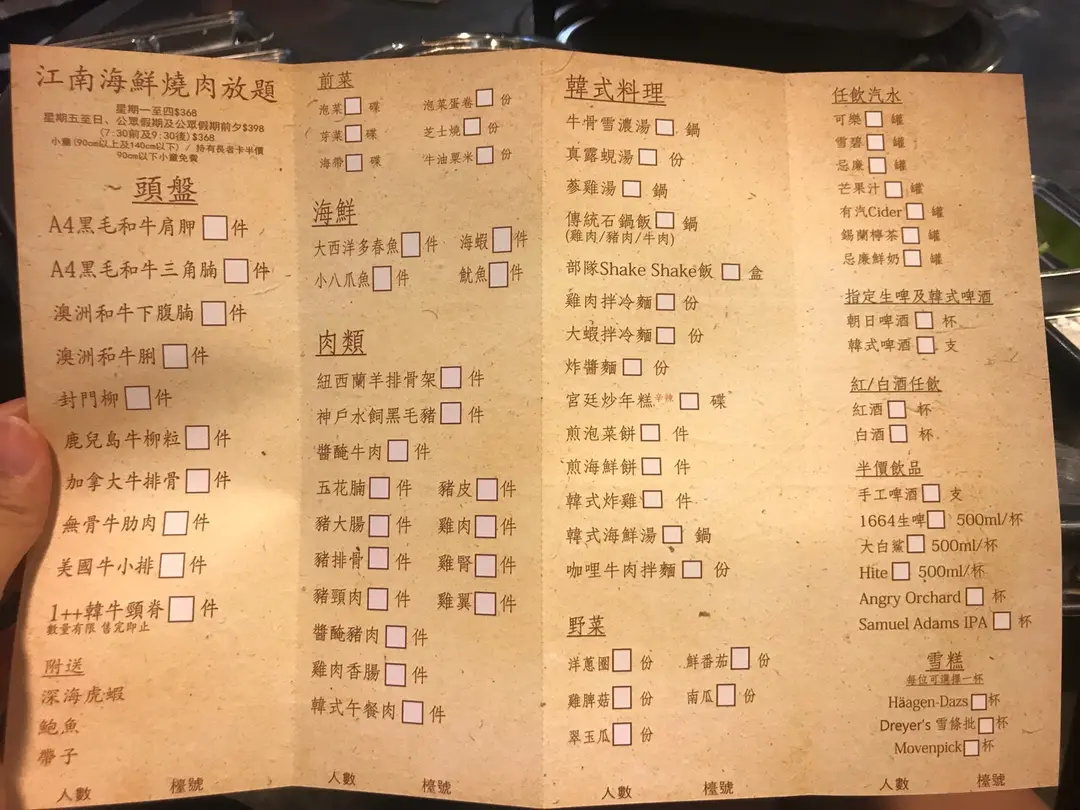 江南海鮮燒肉放題
星期一至四$368
星期五至日、公眾假期及公眾假期前夕$398
(7:30前及9:30後)$368
小童(90cm以上及140cm以下) / 持有長者卡半價
90cm以下小童免費
~ 頭盤
A4黑毛和牛肩胛 件
A4黑毛和牛三角腩 件
澳洲和牛下腹腩 件
澳洲和牛脷 件
封門柳 件
鹿兒島牛柳粒 件
加拿大牛排骨 件
無骨牛肋肉 件
美國牛小排 件
1++韓牛頸脊 件
數量有限 售完即止
附送
深海虎蝦
鮑魚
帶子
人數 檯號
前菜
泡菜 碟 泡菜蛋卷 份
芽菜 碟 芝士燒 份
海帶 碟 牛油粟米 份
海鮮
大西洋多春魚 件 海蝦 件
小八爪魚 件 魷魚 件
肉類
紐西蘭羊排骨架 件
神戶水飼黑毛豬 件
醬醃牛肉 件
五花腩 件 豬皮 件
豬大腸 件 雞肉 件
豬排骨 件 雞腎 件
豬頸肉 件 雞翼 件
醬醃豬肉 件
雞肉香腸 件
韓式午餐肉 件
人數 檯號
韓式料理
牛骨雪濃湯 鍋
真露蜆湯 份
蔘雞湯 鍋
傳統石鍋飯 鍋
(雞肉/豬肉/牛肉)
部隊Shake Shake飯 盒
雞肉拌冷麵 份
大蝦拌冷麵 份
炸醬麵 份
宮廷炒年糕 辛辣 碟
煎泡菜餅 件
煎海鮮餅 件
韓式炸雞 件
韓式海鮮湯 鍋
咖哩牛肉拌麵 份
野菜
洋蔥圈 份 鮮番茄 份
雞脾菇 份 南瓜 份
翠玉瓜 份
人數 檯號
任飲汽水
可樂 罐
雪碧 罐
忌廉 罐
芒果汁 罐
有汽Cider 罐
錫蘭檸茶 罐
忌廉鮮奶 罐
指定生啤及韓式啤酒
朝日啤酒 杯
韓式啤酒 支
紅/白酒任飲
紅酒 杯
白酒 杯
半價飲品
手工啤酒 支
1664生啤 500ml/杯
大白鯊 500ml/杯
Hite 500ml/杯
Angry Orchard 杯
Samuel Adams IPA 杯
雪糕
每位可選擇一杯
Häagen-Dazs 杯
Dreyer's 雪條批 杯
Movenpick 杯
人數 檯號